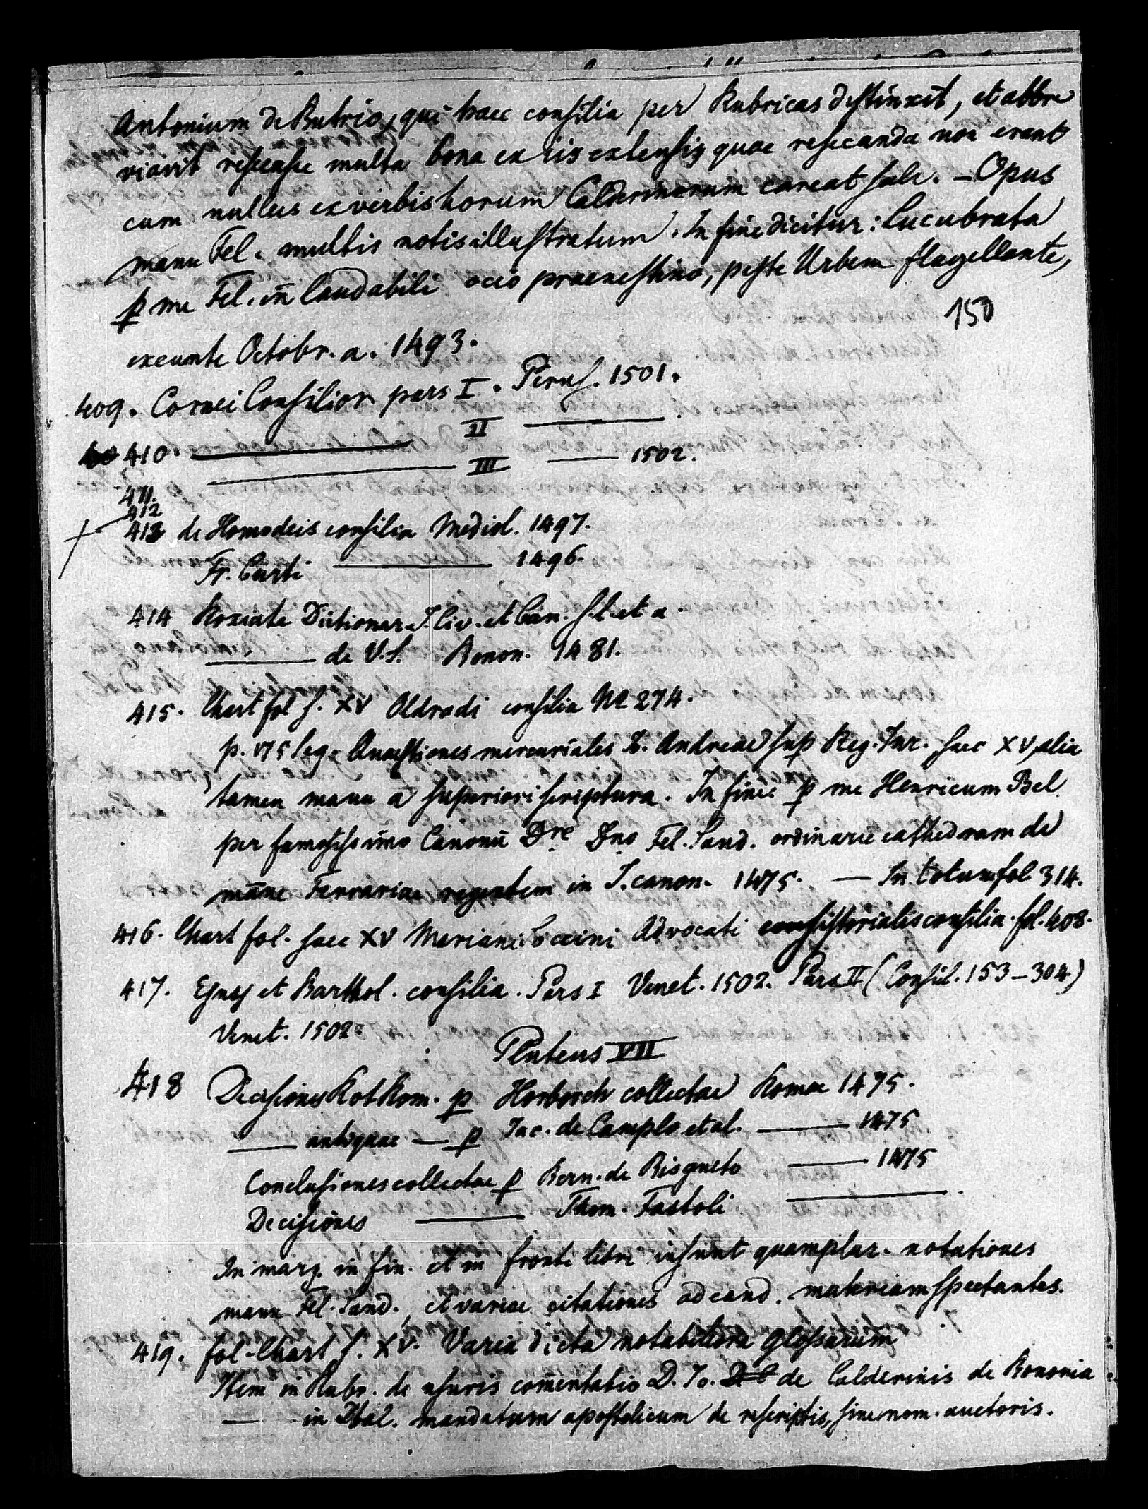 Antonium de Butrio, qui haec consilia per Rubricas distinxit, et abbre
viavit resecasse multa bona ex iis extensis quae resecanda non erant
cum nullus ex verbis horum Calderinorum careat sale. — Opus
manu Fel. multis notis illustratum. In fine dicitur: lucubrata
p me Fel. in laudabili ocio praenestino, peste Urbem flagellante,
150
exeunte Octobr. a. 1493.
409. Cornei Consilior pars I. Perus. 1501.
410 ——— II ———
——— III —— 1502.
411.
412
413 de Homodeis consilia Mediol. 1497.
Fr. Curti ——— 1496.
414 Rosiate Dictionar. J. Civ. et Can. s. l. et a
——— de V. S. Bonon. 1481.
415. Chart fol s. XV Oldradi consilia No 274.
p. 175 seq. Quaestiones mercuriales Jo. Andreae sup Reg. Jur. saec XV alia
tamen manu a superiori scriptura. In fine p me Henricum Bel
per famosissimo Canonu Dre Dno Fel. Sand. ordinarie cathedram de
mane Ferrariae regentem in J. canon. 1475. — In totum fol 314.
416. Chart fol. saec XV Mariani Soccini Advocati consistorialis consilia fl. 408.
417. Ejusd et Barthol. consilia. Pars I Venet. 1502. Pars II (Consil. 153–304)
Venet. 1502
Pluteus VII
418 Decisiones Rot Rom. p Horborch collectae Romae 1475.
—— antiquae — p Jac. de Camplo et al. —— 1475
Conclusiones collectae p Bern. de Bisgneto —— 1475
Decisiones ——— Thom. Fastoli ———.
In marg. in fin. et in fronte libri insunt quamplur. notationes
manu Fel. Sand., et variae citationes ad eand. materiam spectantes.
419. fol. Chart s. XV. Varia dicta notabiliora glossarum
Item in Rubr. de usuris comentatio D. Jo. de Calderinis de Bononia
—— in mandatum apostolicum de rescriptis, sine nom. auctoris.